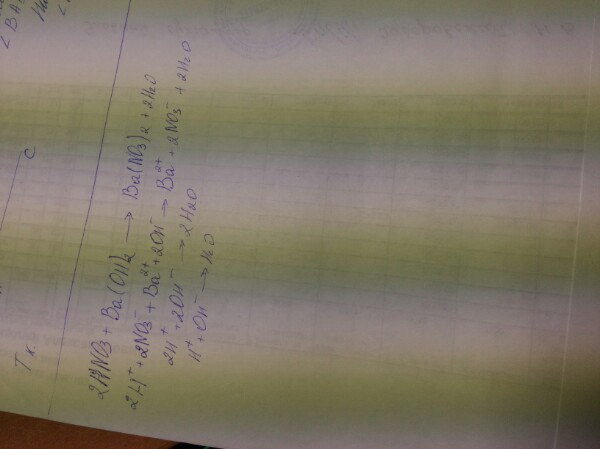 2HNO3 + Ba(OH)2 → Ba(NO3)2 + 2H2O
2H⁺ + 2NO3⁻ + Ba²⁺ + 2OH⁻ → Ba²⁺ + 2NO3⁻ + 2H2O
2H⁺ + 2OH⁻ → 2H2O
H⁺ + OH⁻ → H2O